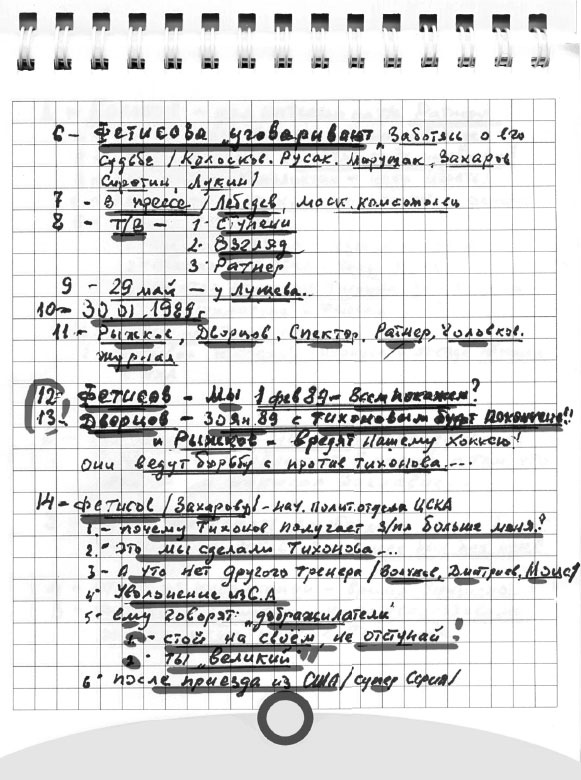 6 - Фетисова "уговаривают" Заботясь о его
судьбе / Колосков. Русак. Марущак, Захаров
Сиротин, Лукин /
7 - В прессе / Лебедев, Моск. Комсомолец
8 - Т/В - 1 Ступени
2. Взгляд
3 Ратнер
9 - 29 май - у Лушева...
10 - 30.01.1989 г
11 - Рыжков, Дворцов, Спектор, Ратнер, Головков.
Журнал
12 - Фетисов - Мы 1 фев 89 - Всем покажем?
13 - Дворцов - 30 ян. 89 с Тихоновым будет покончено!!
и Рыжков - вредят нашему хоккею!
они ведут борьбу с против Тихонова....
14 - Фетисов / Захарову / - нач. полит. отдела ЦСКА
1. - почему Тихонов получает з/пл больше меня?
2. Это мы сделали Тихонова...
3 - А что нет другого тренера / Волчков, Дмитриев, Моисе/
4. Увольнение из С.А
5. ему говорят: "доброжилатели"
1 - стой на своём, не отступай!
2. Ты "великий"
6. После приезда из США / супер Серия /